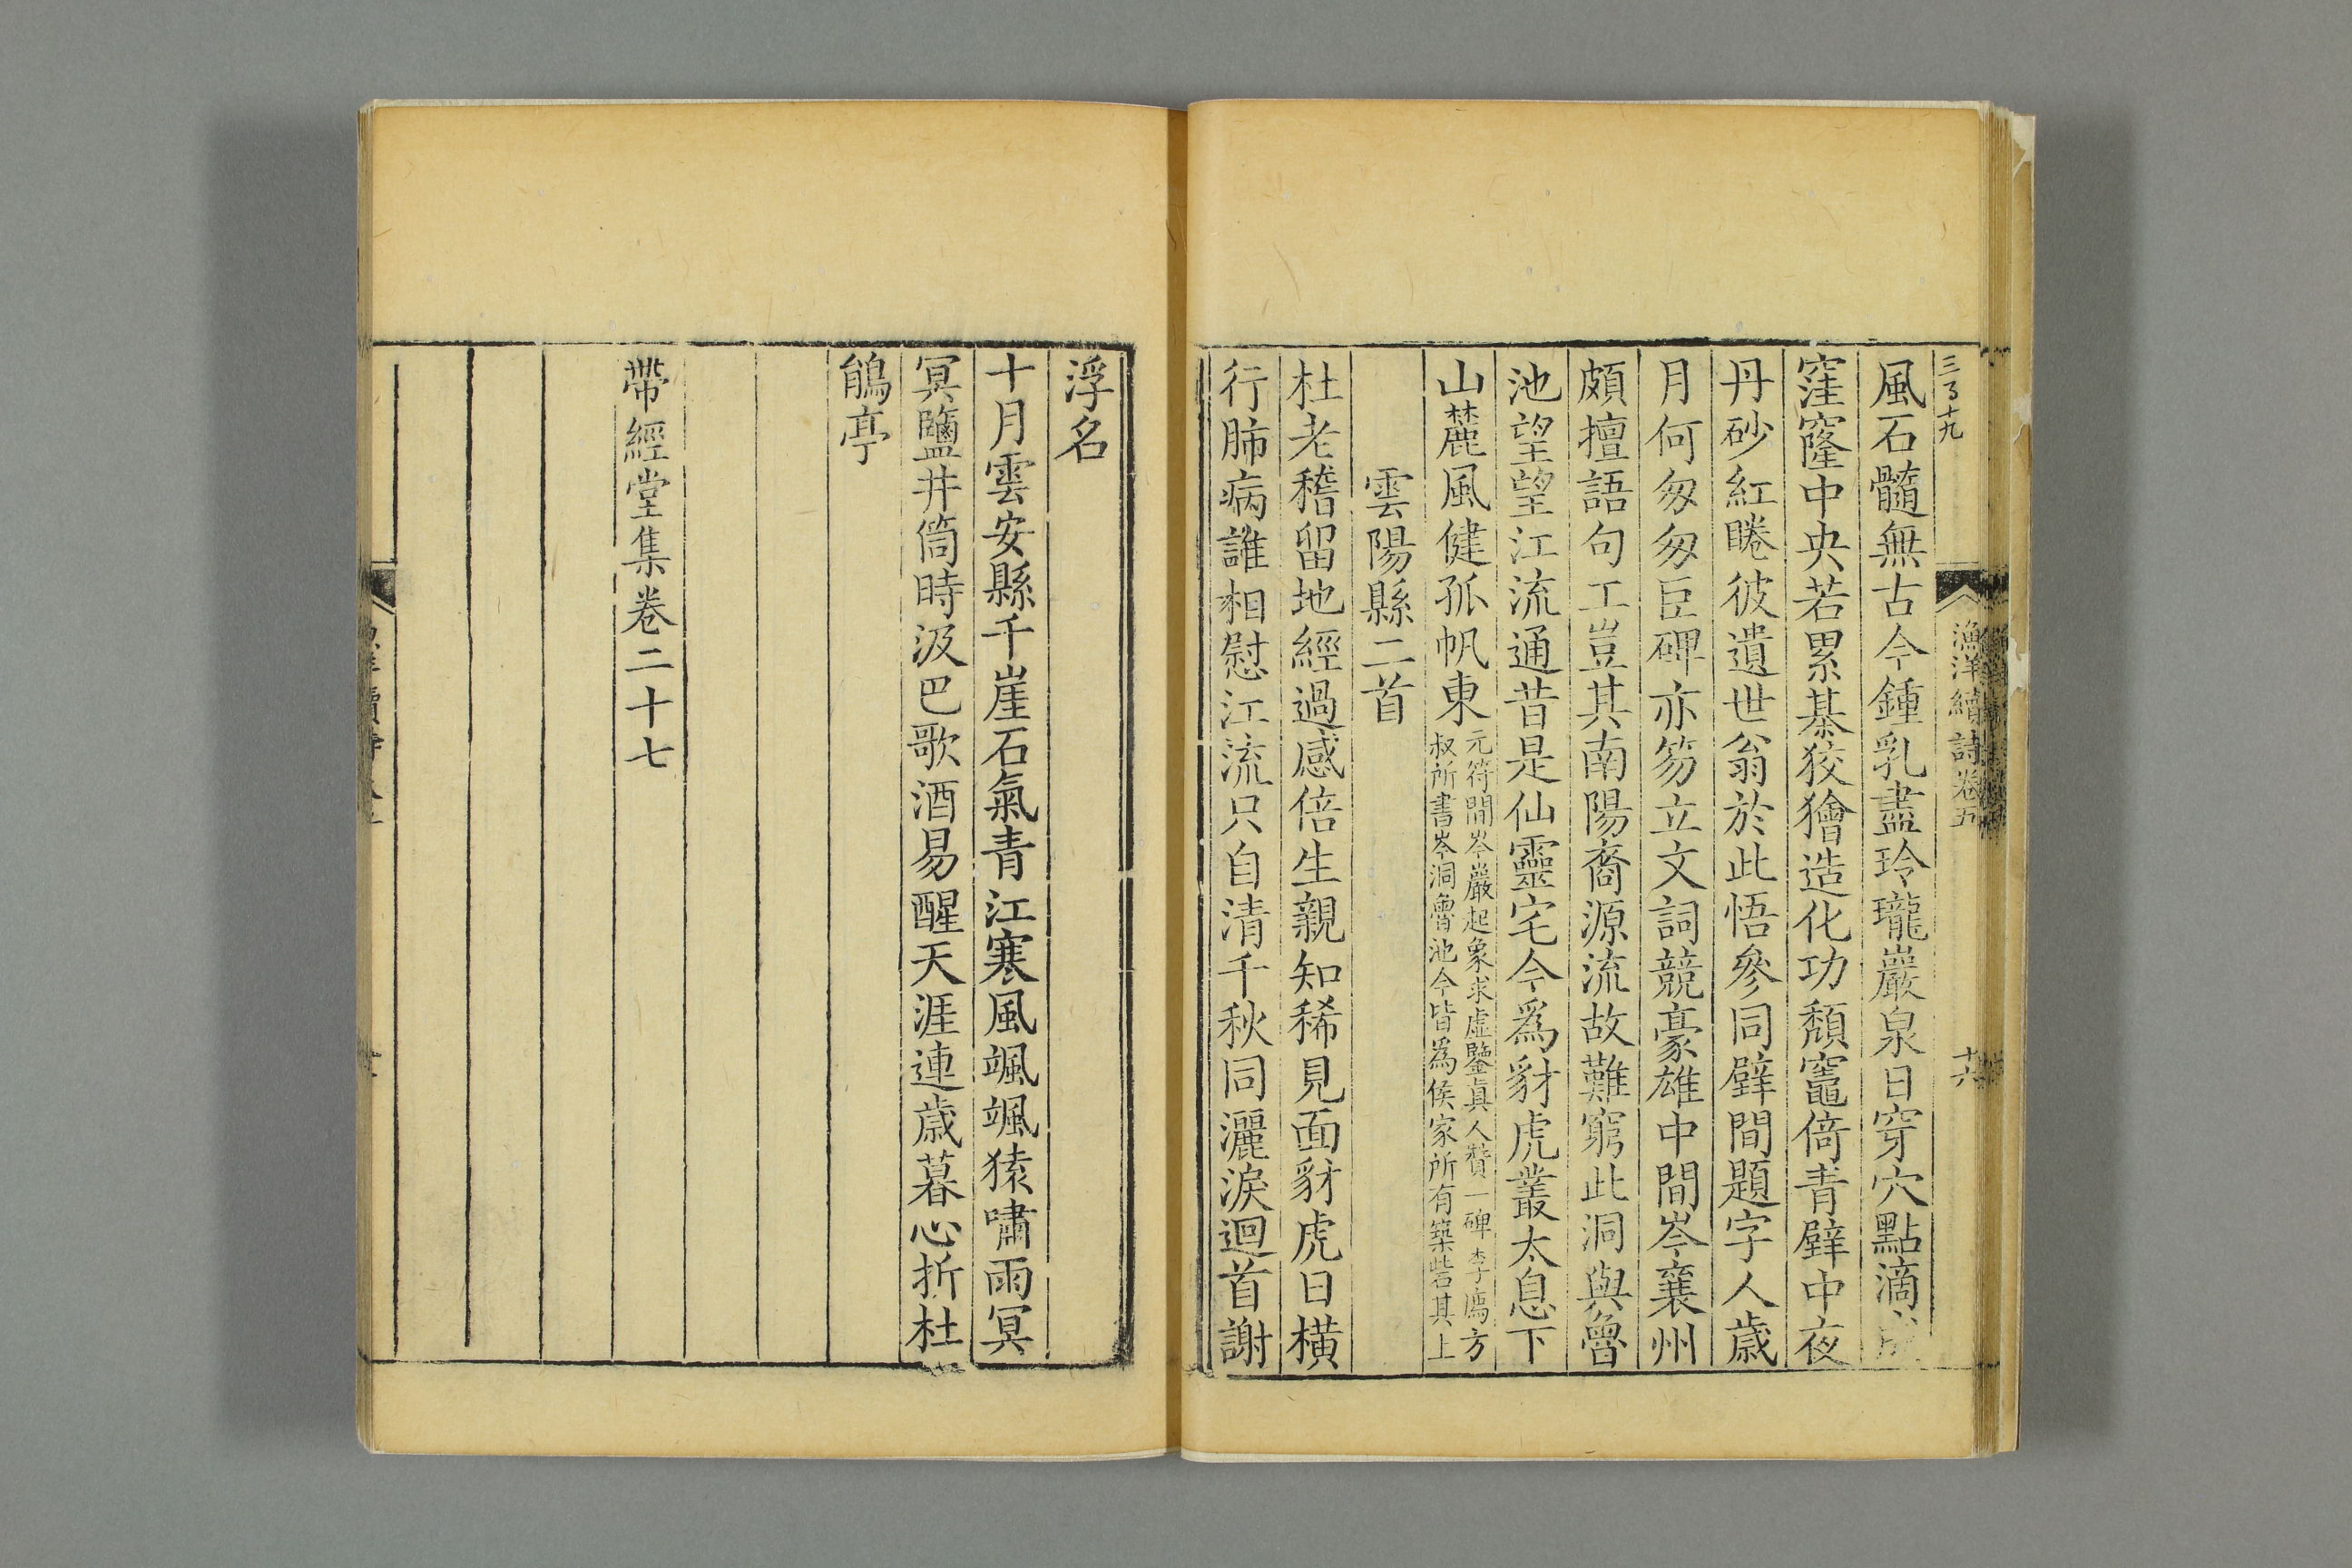 漁洋續詩卷五
十六
風石髓無古今鍾乳盡玲瓏巖泉日穿穴點滴成
窪窿中央若累棊狡獪造化功頹竈倚青壁中夜
丹砂紅睠彼遺世翁於此悟參同壁間題字人歲
月何匆匆臣碑亦笏立文詞競豪雄中間岑襄州
頗擅語句工豈其南陽裔源流故難窮此洞與魯
池望望江流通昔是仙靈宅今爲豺虎叢太息下
山麓風健孤帆東
元符間岑巖起象求虛鑒真人贊一碑李廌方
叔所書岑洞魯池今皆爲侯家所有築砦其上
雲陽縣二首
杜老稽留地經過感倍生親知稀見面豺虎日橫
行肺病誰相慰江流只自清千秋同灑淚迴首謝
浮名
十月雲安縣千崖石氣青江寒風颯颯猿嘯雨冥
冥鹽井筒時汲巴歌酒易醒天涯連歲暮心折杜
鵑亭
帶經堂集卷二十七